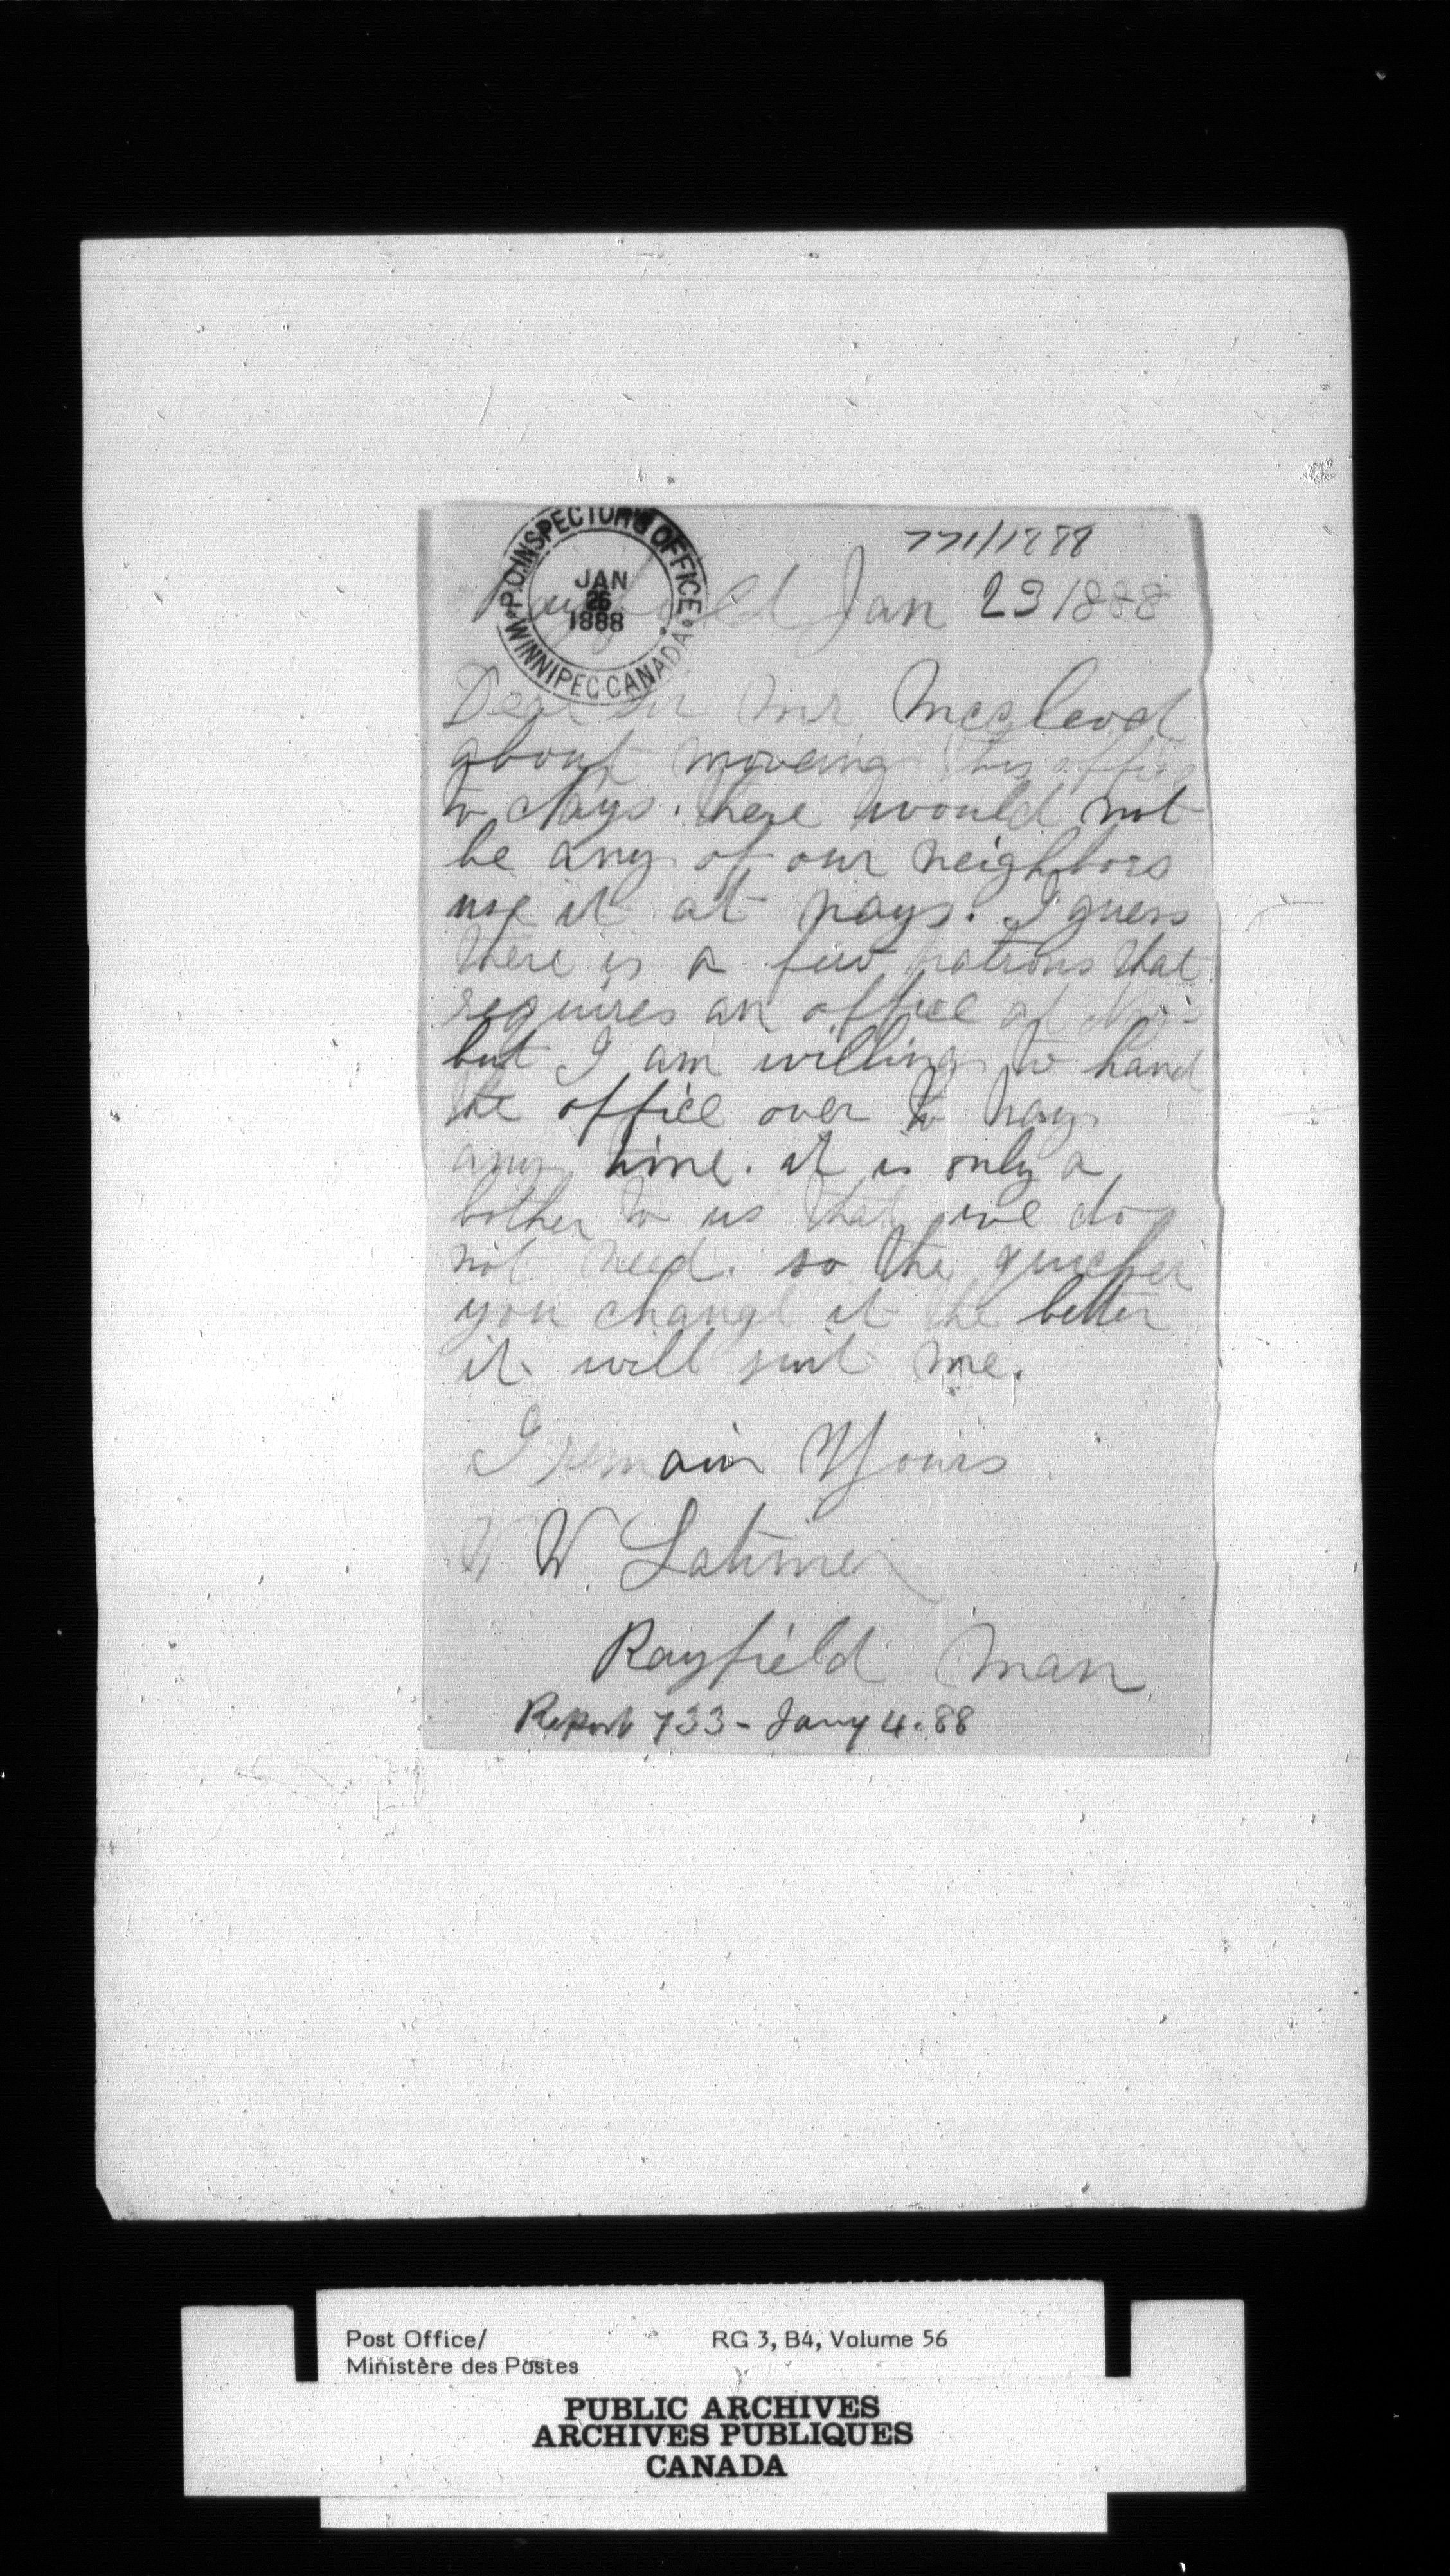 771/1888
P.O. INSPECTOR'S OFFICE
WINNIPEG CANADA
JAN
26
1888
Rayfield Jan 23 1888
Dear Sir Mr Mccleod
about moveing this office
to Nays. there would not
be any of our neighbors
use it at nays. I guess
there is a few patrons that
requires an office at Nays
but I am willing to hand
the office over to nays
any time. it is only a
bother to us that we do
not need. so the quicker
you change it the better
it will suit me.
I remain Yours
W W. Latimer
Rayfield Man
Report 733 - Jany 4. 88
Post Office/
Ministère des Postes
RG 3, B4, Volume 56
PUBLIC ARCHIVES
ARCHIVES PUBLIQUES
CANADA